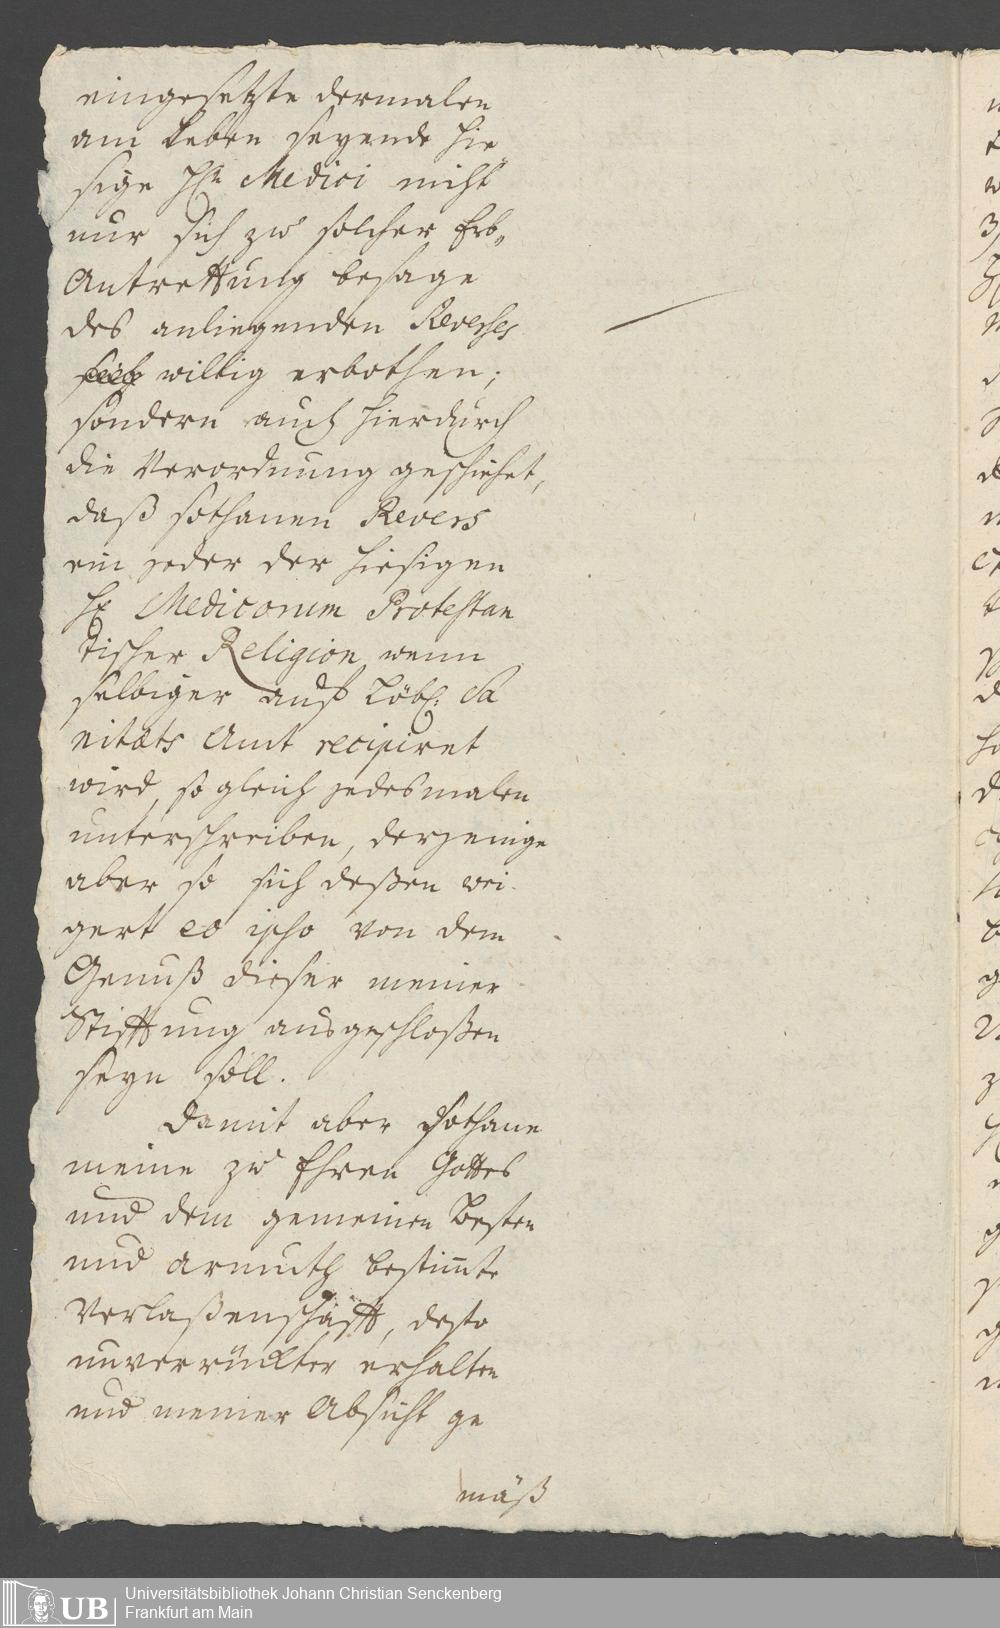 eingesetzte dermalen
am Leben seyende hie„
sige Hn Medici nicht
nur sich zu solcher Erb„
Antrettung besage
des anliegenden Reverses
willig erbothen;
sondern auch hierdurch
die Verordnung geschiehet,
daß sothanen Revers
ein jeder der hiesigen
H Medicorum Protestan
tischer Religion wenn
selbiger auf Löbl: Sa
nitæts Amt recipiret
wird, so gleich jedesmalen
unterschreiben, derjenige
aber so sich deßen wei
gert eo ipso von dem
Genuß dieser meiner
Stifftung ausgeschloßen
seyn soll.
Damit aber sothane
meine zu Ehren Gottes
und dem gemeinen Besten
und armuth bestimte
Verlaßenschafft, desto
unverrückter erhalten
und meiner Absicht ge
mäß
UB
Universitätsbibliothek Johann Christian Senckenberg
Frankfurt am Main